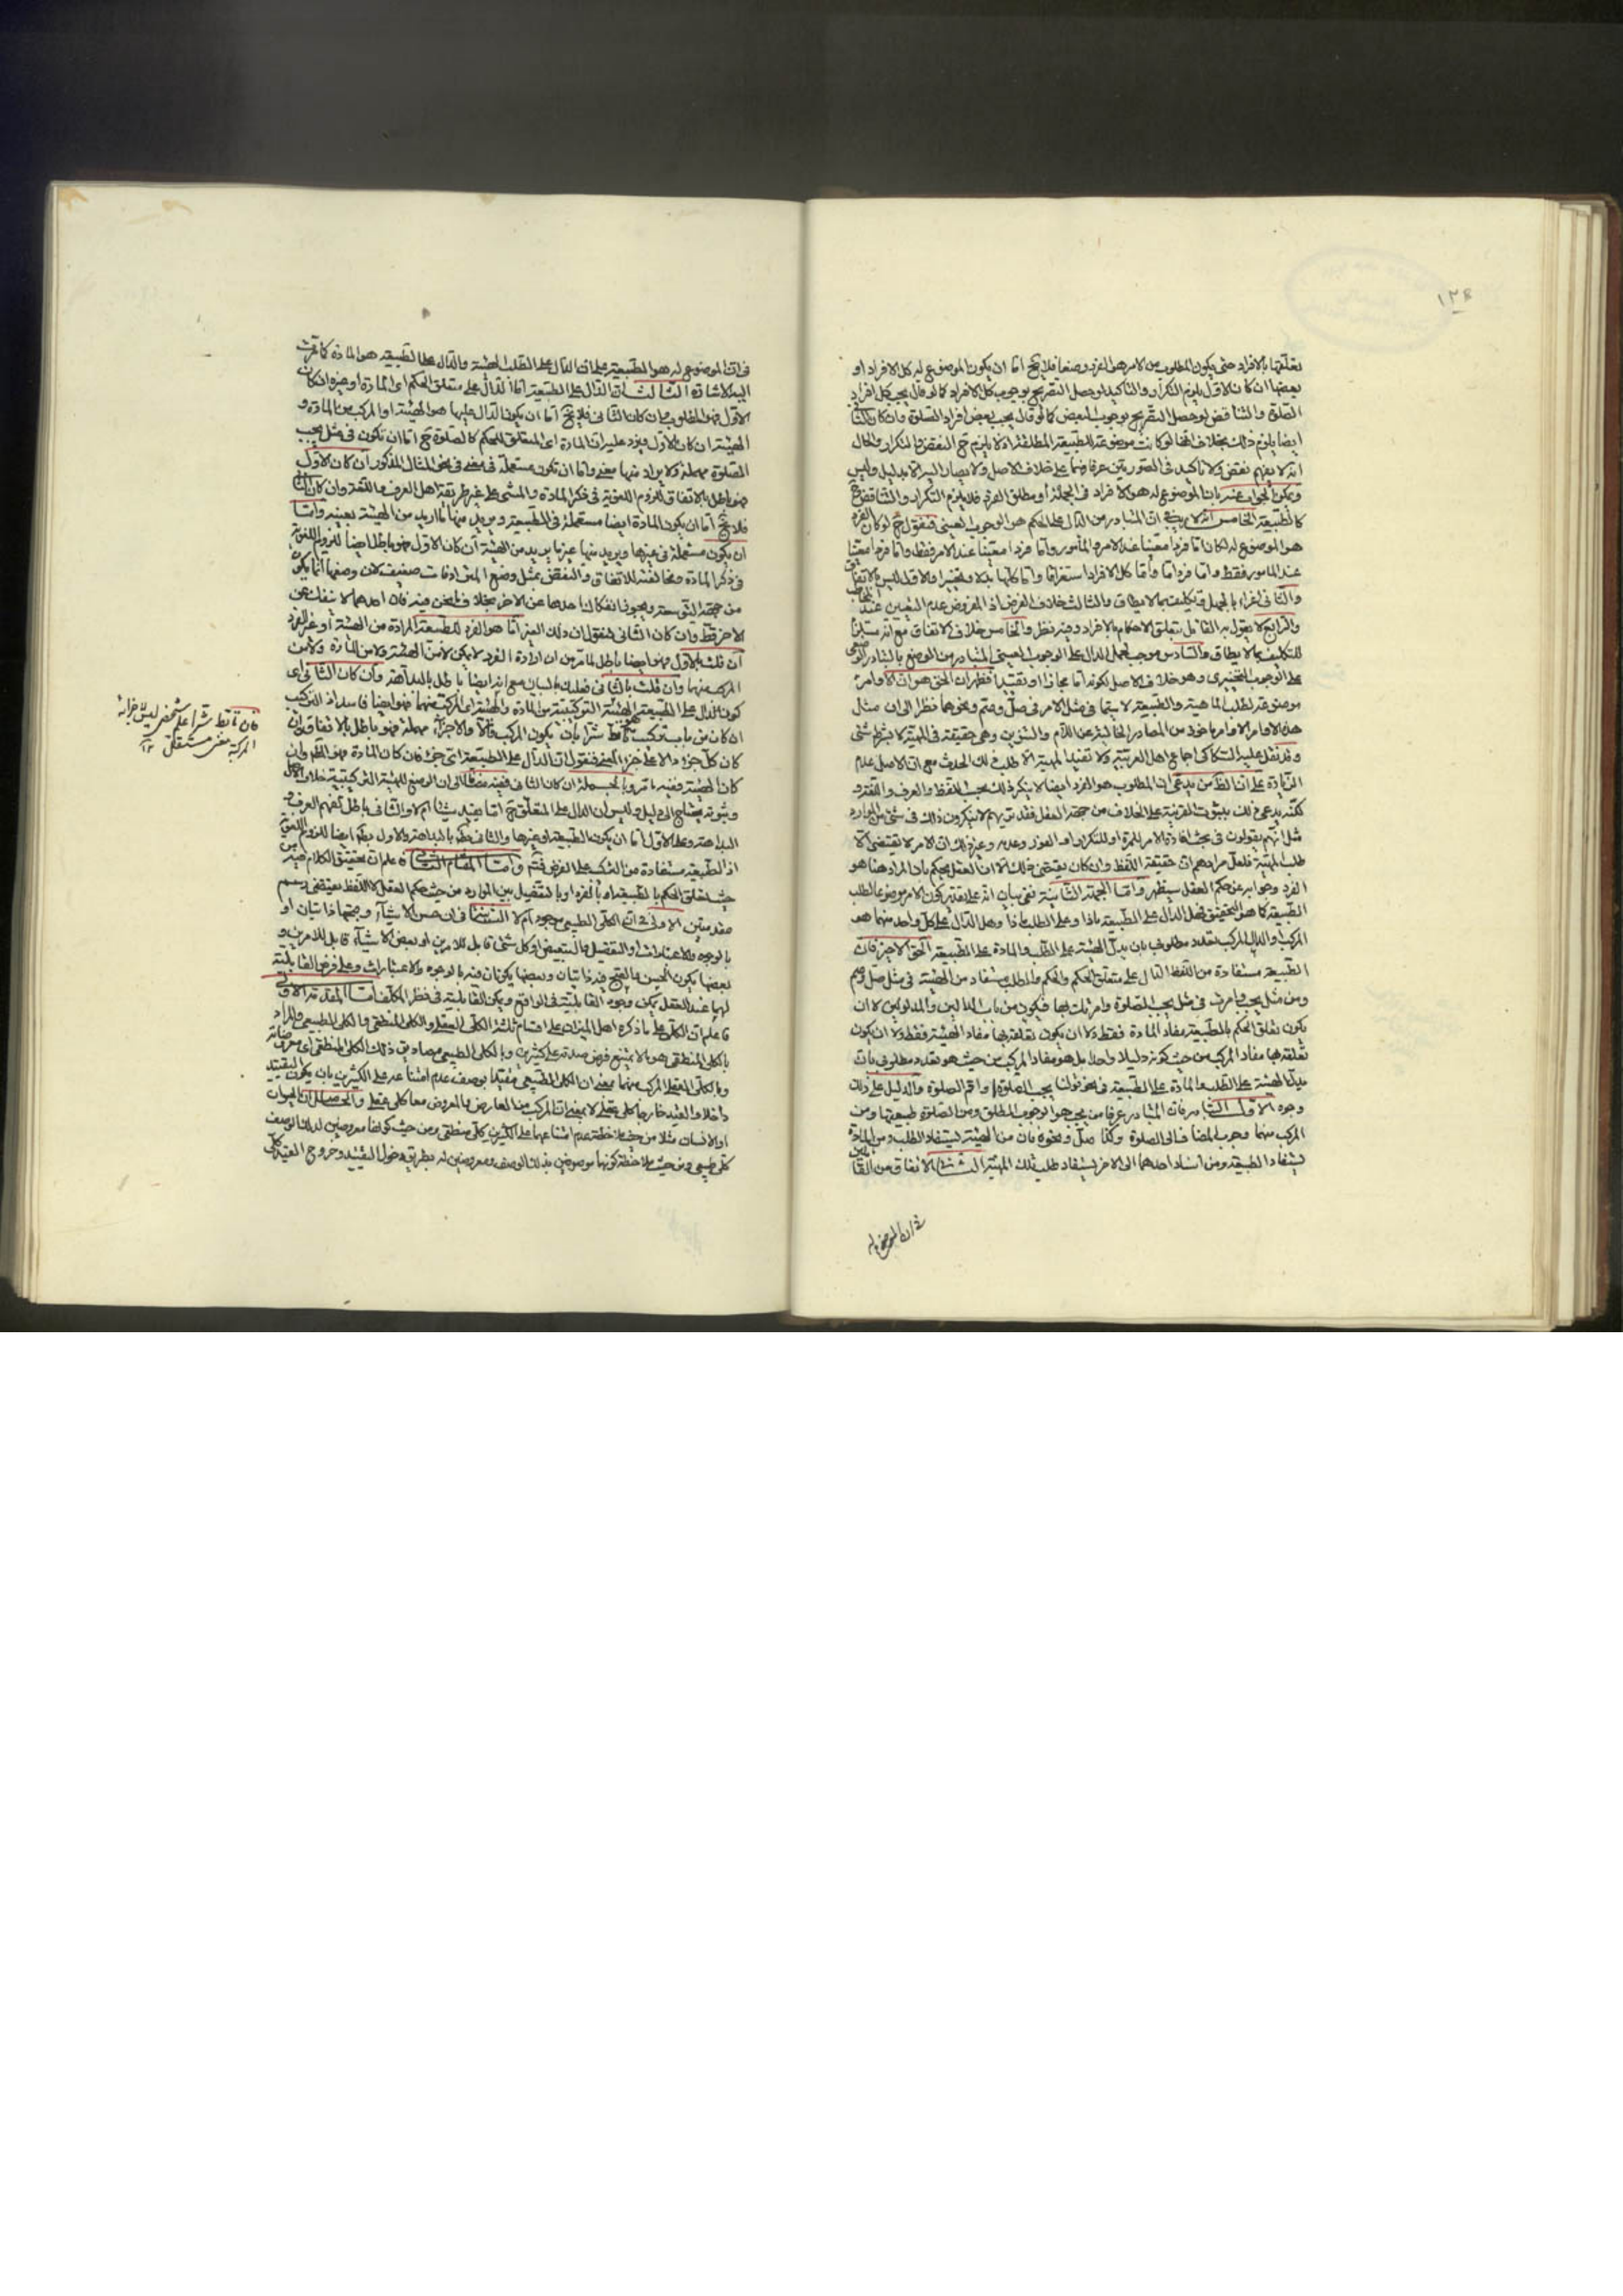 ١٣٤
تعلقها بالافراد حتى يكون المطلوب من الامر هو الفرد وضعا فلا يخ اما ان يكون الموضوع له كل الافراد او
بعضها ان كان الاول يلزم التكرار والتاكيد لو حصل التصريح بوجوب كل الافراد كما لو قال يجب كل افراد
الصلوة والتناقض لو حصل التصريح بوجوب البعض كما لو قال يجب بعض افراد الصلوة وان كان الثانى
ايضا يلزم ذلك بخلاف انها لو كانت موضوعة للطبيعة المطلقة اذ لا يلزم ح التناقض والتكرار والحال
انه لا يفهم نقض ولا تاكيد فى الصورتين عرفا وهما على خلاف الاصل ولا يصار اليه الا بدليل وليس
ويمكن الجواب عنه بان الموضوع له هو الافراد فى الجملة او مطلق الفرد فلا يلزم التكرار والتناقض ح
كالطبيعة الخامس انه لا ريب فى ان المتبادر من الدال على الحكم هو الوجوب العينى فنقول ح لو كان الفرد
هو الموضوع له لكان اما فردا معينا عند الامر والمأمور واما فردا معينا عند الامر فقط واما فردا معينا
عند المامور فقط واما فردا ما واما كل الافراد استغراقا واما كلها بدلا وتخييرا والاول ليس بالاتفاق
والثانى اغراء بالجهل وتكليف بما لا يطاق والثالث خلاف الفرض اذ المفروض عدم التعيين عند المخاطب
والرابع لا يقول به القائل بتعلق الاحكام بالافراد وفيه نظر والخامس خلاف الاتفاق مع انه مستلزم
للتكليف بما لا يطاق والسادس موجب لحمل الدال على الوجوب العينى المتبادر من الوضع بالتبادر الوضعى
على الوجوب التخييرى وهو خلاف الاصل لكونه اما مجازا او تقييدا فظهر ان الحق هو ان الاوامر
موضوعة لطلب الماهية والطبيعة لا سيما فى مثل الامر فى صل وصم ونحوهما نظرا الى ان مثال
هذه الاوامر مأخوذ من المصادر الخالية عن اللام والتنوين وهى حقيقة فى المهية لا بشرط شئ
وقد نقل عليه السكاكى اجماع اهل العربية ولا تفيد الهيئة الا طلب ذلك الحدث مع ان الاصل عدم
الزيادة على ان الظ من يدعى ان المطلوب هو الفرد ايضا لا ينكر ذلك بحسب اللفظ والعرف واللغة و
لكنه يدعى ذلك بثبوت القرينة على الخلاف من جهة العقل فقد تريهم لا ينكرون ذلك فى شئ من الموارد
مثل انهم يقولون فى بحث افادة الامر للمرة او للتكرار او الفور وعدمه وغير ذلك ان الامر لا يقتضى الا
طلب المهية فلعل مرادهم ان حقيقة اللفظ وان كان يقتضى ذلك الا ان العقل يحكم بان المراد هنا هو
الفرد وجوابه عن حكم العقل سيظهر واما الجهة الثانية ففى بيان انه على تقدير كون الامر موضوعا لطلب
الطبيعة كما هو التحقيق فهل الدال على الطبيعة ماذا وعلى الطلب ماذا وهل الدال على كل واحد منهما هو
المركب او الدال المركب بتعدد مطلوبى بان يدل الهيئة على الطلب والمادة على الطبيعة الحق الاخير فان
الطبيعة مستفادة من اللفظ الدال على متعلق الحكم والحكم والطلب مستفاد من الهيئة فى مثل صل وصم
ومن مثل يجب وامرت فى مثل يجب الصلوة وامرتك بها فيكون من باب الدالين والمدلولين لا ان
يكون تعلق الحكم بالطبيعة مفاد المادة فقط ولا ان يكون تعلقه بها مفاد الهيئة فقط ولا ان يكون
تعلقه بها مفاد المركب من حيث كونه دليلا واحدا بل هو مفاد المركب من حيث هو تعدد مطلوبى بان
يدل الهيئة على الطلب والمادة على الطبيعة فى نحو قولنا يجب الصلوة او اقم الصلوة والدليل على ذلك
وجوه الاول التبادر فان المتبادر عرفا من يجب هو الوجوب المطلق ومن الصلوة طبيعتها ومن
المركب منهما وجوب المضاف الى الصلوة وكذا صل ونحوه بان من الهيئة يستفاد الطلب ومن المادة
يستفاد الطبيعة ومن اسناد احدهما الى الاخر يستفاد طلب تلك المهية الثانى الاتفاق من القائلين
فى ان الموضوع له
فى ان الموضوع له هو الطبيعة على ان الدال على الطلب الهيئة والدال على الطبيعة هو المادة كما مرت
اليه الاشارة الثالث ان الدال على الطبيعة اما الدال على متعلق الحكم اى المادة او غيره ان كان
الاول فهو المطلوب وان كان الثانى فلا يخ اما ان يكون الدال عليها هو الهيئة او المركب من المادة و
الهيئة ان كان الاول فيرد عليه ان المادة اى المتعلق للحكم كالصلوة ح اما ان تكون فى مثل يجب
الصلوة مهملة ولا يراد منها معنى واما ان تكون مستعملة فى معنى فى نحو المثال المذكور ان كان الاول
فهو باطل بالاتفاق للزوم اللغوية فى ذكر المادة والمشى على غير طريقة اهل العرف واللغة وان كان الثانى
فلا يخ اما ان يكون المادة ايضا مستعملة فى الطبيعة ويريد منها ما اريد من الهيئة بعينه واما
ان يكون مستعملة فى غيرها ويريد منها غير ما يريد من الهيئة ان كان الاول فهو باطل ايضا للزوم اللغوية
فى ذكر المادة ومخالفته للاتفاق والنقض بمثل وضع المترادفات ضعيف لان وضعها انما يكون
من جهة التوسعة ويجوز انفكاك احدهما عن الاخر بخلاف ما نحن فيه فان احدهما لا ينفك عن
الاخر قط وان كان الثانى فنقول ان ذلك الغير اما هو الفرد للطبيعة المرادة من الهيئة او غير الفرد
ان قلت بالاول فهو ايضا باطل لما مر من ان ارادة الفرد لا يمكن لا من الهيئة ولا من المادة ولا من
المركب منهما وان قلت بالثانى فعليك بالبيان مع انه ايضا باطل بالبداهة وان كان الثانى اى
كون الدال على الطبيعة الهيئة التركيبية من المادة والهيئة اى المركب منهما فهو ايضا فاسد اذ التركيب
ان كان من باب تركيب تأبط شرا بان يكون المركب دالا والاجزاء مهملة فهو باطل بالاتفاق وان
كان كل جزء دالا على جزء المعنى فنقول ان الدال على الطبيعة اى جزء فان كان المادة فهو المطلوب وان
كان الهيئة ففيه ما مر وبالجملة ان كان الثانى ففيه مضافا الى ان الوضع للهيئة التركيبية خلاف الاصل
وثبوته يحتاج الى دليل وليس ان الدال على المتعلق ح اما يفيد شيئا ام لا والثانى باطل بفهم العرف و
البداهة وعلى الاول اما ان يكون الطبيعة او غيرها والثانى بط بالبداهة والاول بط ايضا للزوم اللغوية
اذ الطبيعة مستفادة من المركب على الفرض فتم واما المقام الثانى فاعلم ان تحقيق الكلام فيه من
حيث تعلق الحكم بالطبيعة او بالفرد او بالتفصيل بين الموارد من حيث حكم العقل لا اللفظ يقتضى رسم
مقدمتين الاولى فى ان الكلى الطبيعى موجود ام لا الثانية فى ان حسن الاشياء وقبحها ذاتيان او
بالوجوه والاعتبارات او التفصيل والتبعيض او كل شئ قابل للامرين او بعض الاشياء قابل للامرين و
بعضها يكون الحسن والقبح فيه ذاتيان وبعضها يكونان فيه بالوجوه والاعتبارات وعلى فرض القابلية
لهما عند العقل يمكن وجود القابلية فى الواقع ويمكن القابلية فى نظر المكلف اما المقدمة الاولى
فاعلم ان الكلى على ما ذكره اهل الميزان على اقسام ثلثة الكلى العقلى والكلى المنطقى والكلى الطبيعى والمراد
بالكلى المنطقى هو ما لا يمتنع فرض صدقه على كثيرين وبالكلى الطبيعى مصاديق ذلك الكلى المنطقى اى معروضاته
وبالكلى العقلى المركب منهما بمعنى ان الكلى الطبيعى مقيدا بوصف عدم امتناعه على الكثيرين بان يكون التقييد
داخلا والقيد خارجا كلى عقلى لا بمعنى ان المركب من العارض والمعروض معا كلى عقلى والحاصل ان الحيوان
او الانسان مثلا من حيث ملاحظة عدم امتناعهما على الكثيرين كلى منطقى ومن حيث كونهما معروضين لذلك الوصف
كلى طبيعى ومن حيث ملاحظة كونهما موصوفين بذلك الوصف ومعروضين له بطريق دخول التقييد وخروج القيد كلى
فان تأبط شرا علم شخص ليس لاجزائه
المركبة معنى مستقل ١٢